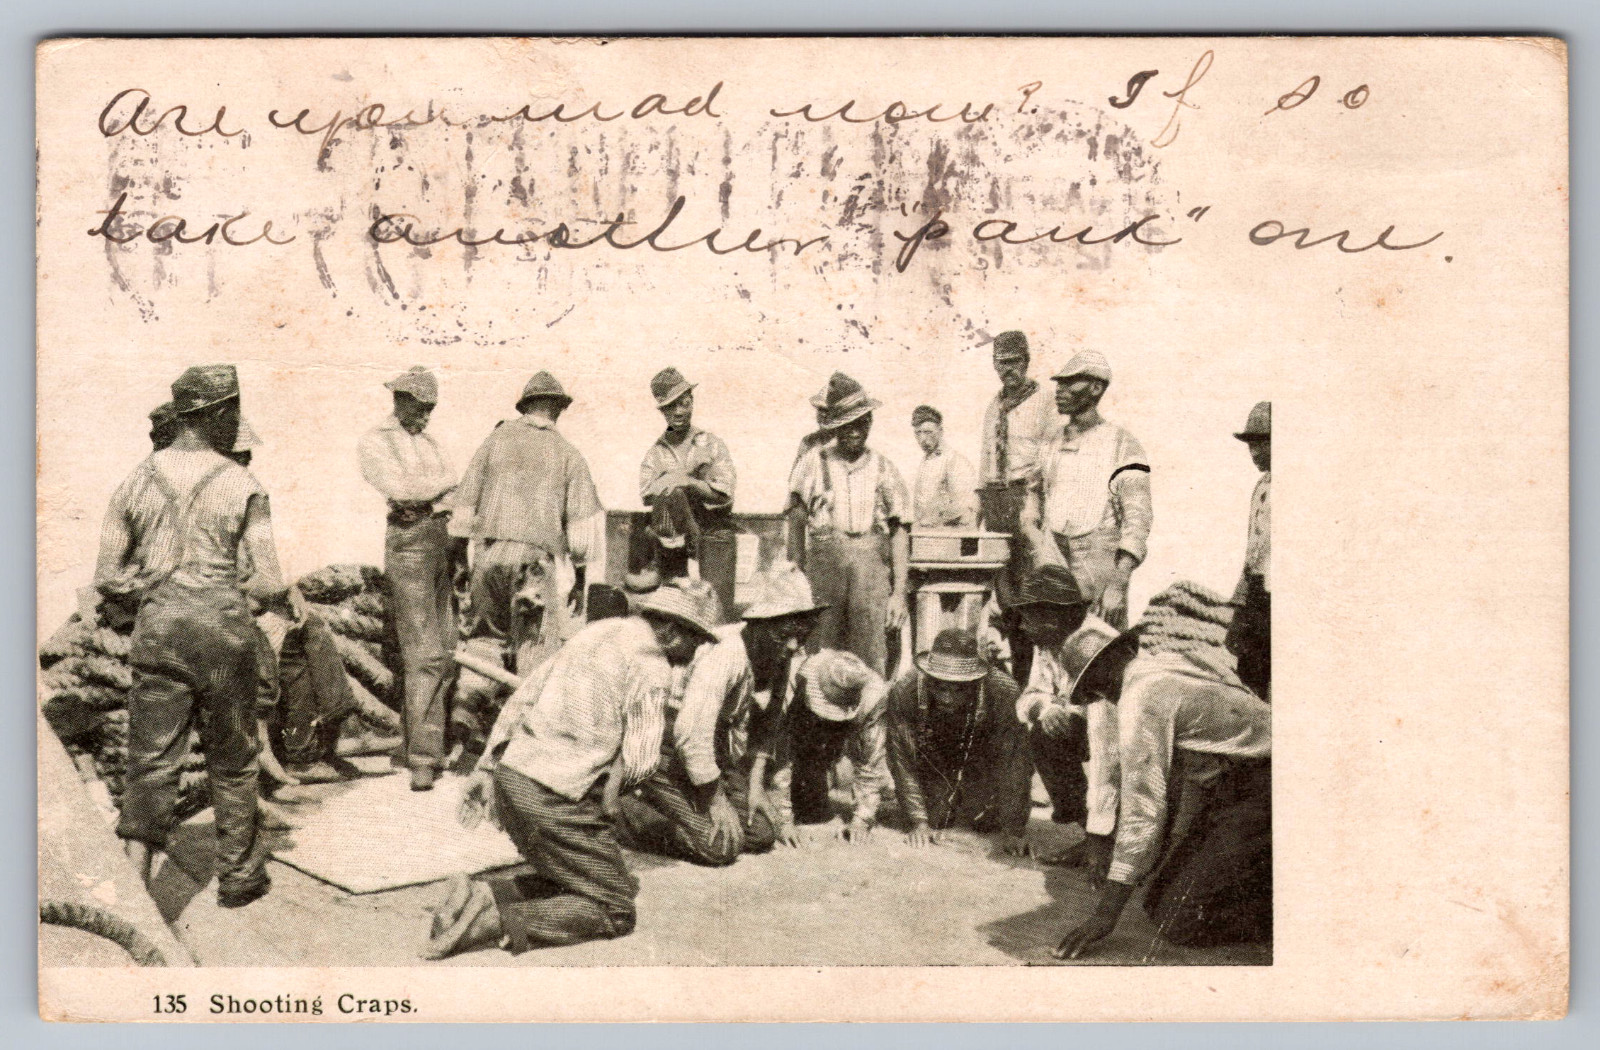 Are you mad now? If so
take another "pank" one.
135 Shooting Craps.